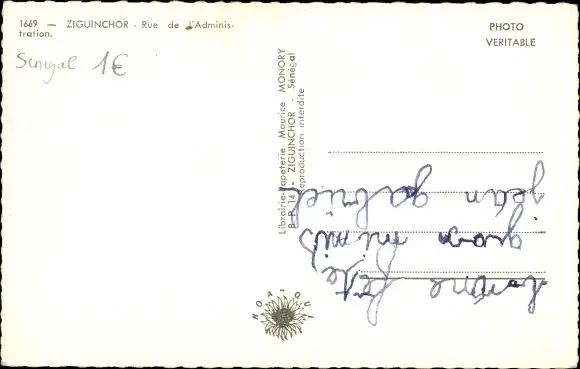 1669 — ZIGUINCHOR - Rue de l'Adminis-
tration.
PHOTO
VERITABLE
Senegal 1€
Librairie-Papeterie Maurice MONORY
B. P. 14 - ZIGUINCHOR - Sénégal
Reproduction interdite
HOA-QUI
bonne fête
mimis
jean gabriel